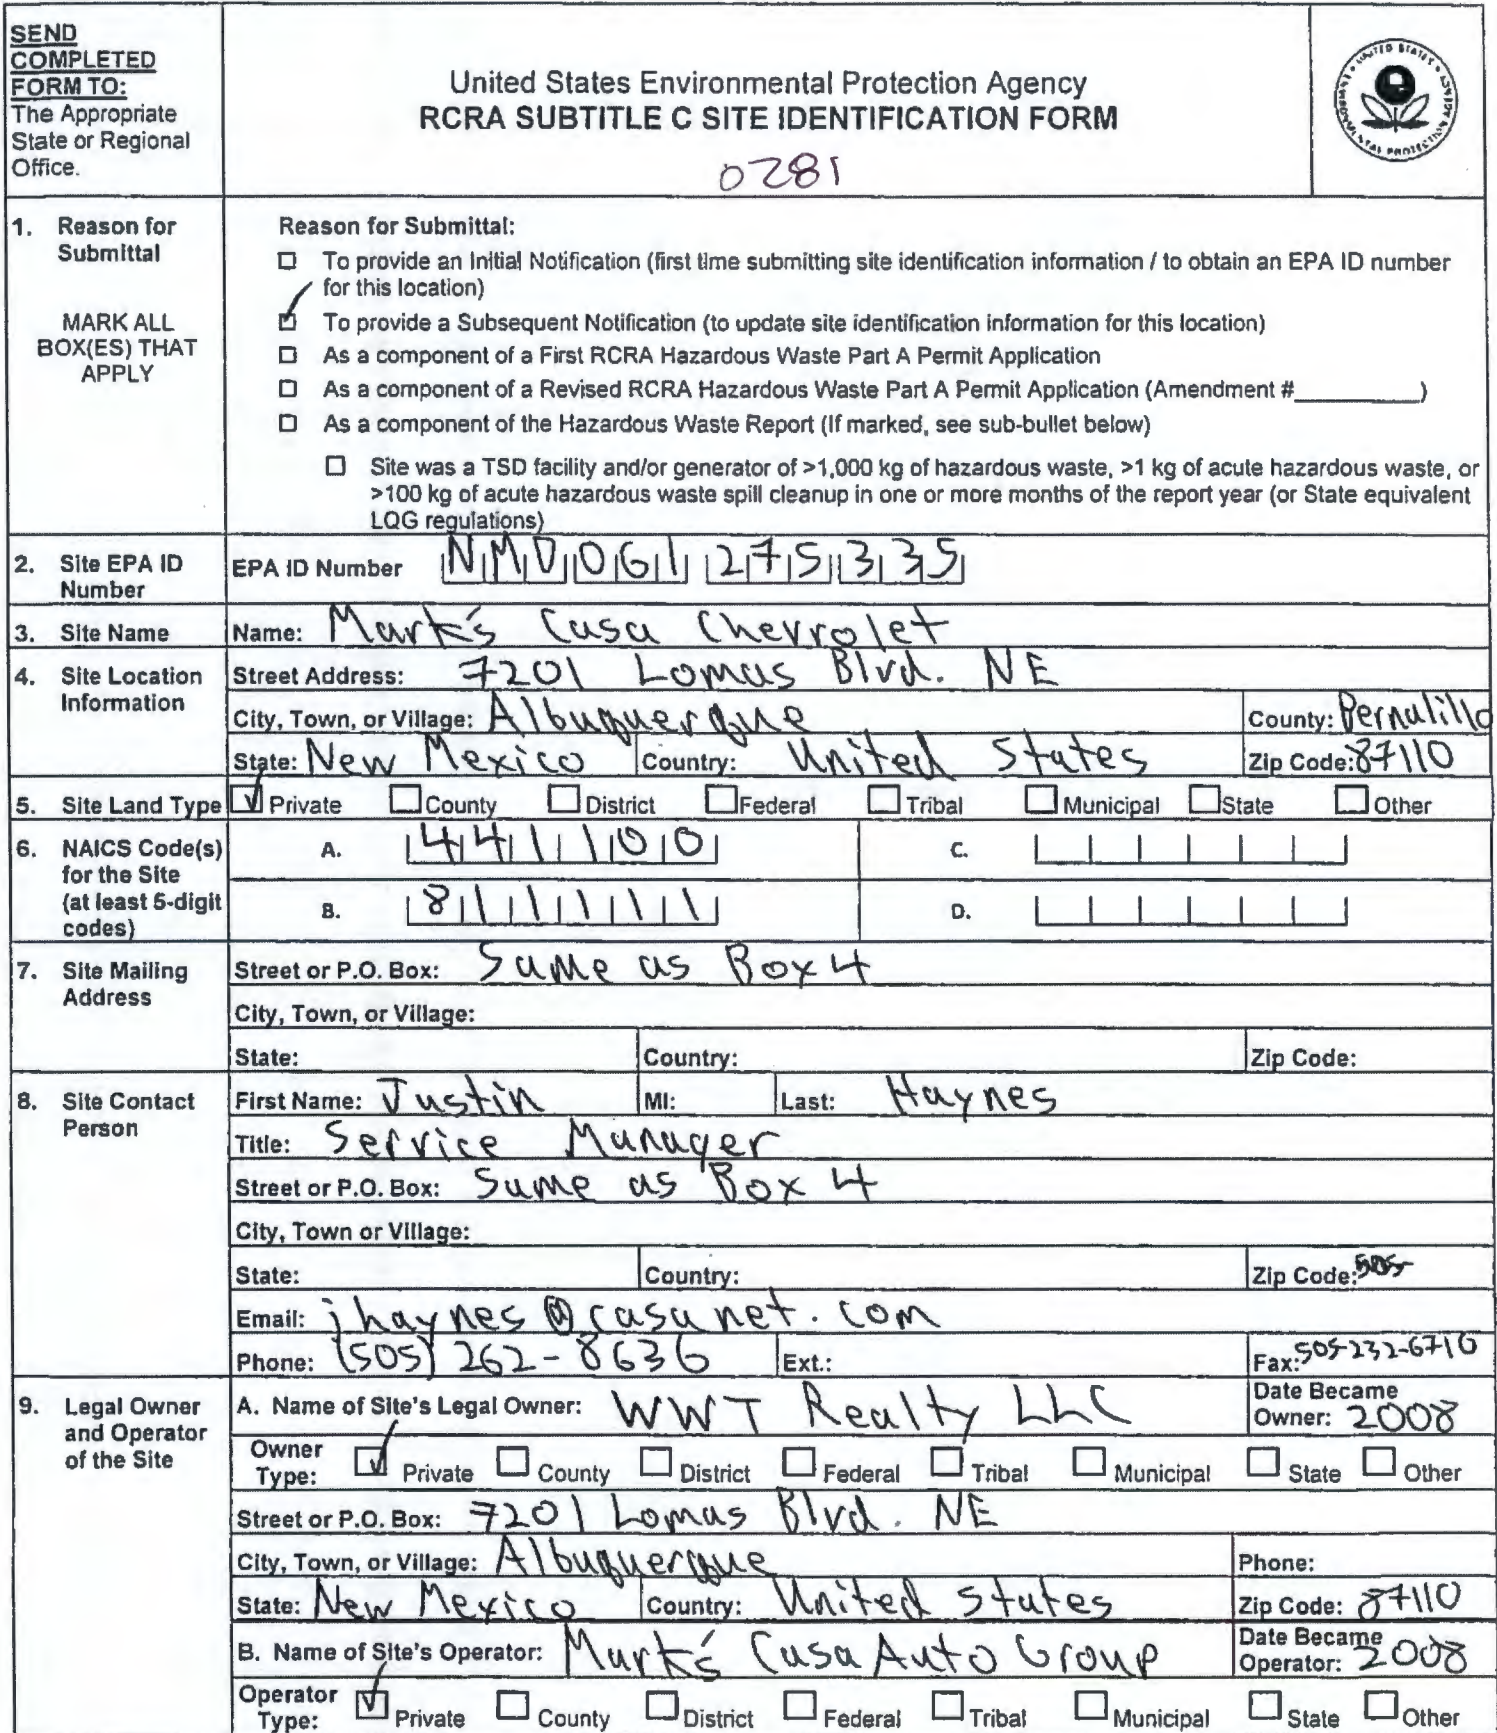 SEND
COMPLETED
FORM TO:
The Appropriate
State or Regional
Office.
United States Environmental Protection Agency
RCRA SUBTITLE C SITE IDENTIFICATION FORM
0281
UNITED STATES ENVIRONMENTAL PROTECTION AGENCY
1. Reason for
Submittal
MARK ALL
BOX(ES) THAT
APPLY
Reason for Submittal:
☐ To provide an Initial Notification (first time submitting site identification information / to obtain an EPA ID number
for this location)
☑ To provide a Subsequent Notification (to update site identification information for this location)
☐ As a component of a First RCRA Hazardous Waste Part A Permit Application
☐ As a component of a Revised RCRA Hazardous Waste Part A Permit Application (Amendment #________)
☐ As a component of the Hazardous Waste Report (If marked, see sub-bullet below)
☐ Site was a TSD facility and/or generator of >1,000 kg of hazardous waste, >1 kg of acute hazardous waste, or
>100 kg of acute hazardous waste spill cleanup in one or more months of the report year (or State equivalent
LQG regulations)
2. Site EPA ID
Number
EPA ID Number NMD061275335
3. Site Name Name: Mark's Casa Chevrolet
4. Site Location
Information
Street Address: 7201 Lomas Blvd. NE
City, Town, or Village: Albuquerque County: Bernalillo
State: New Mexico Country: United States Zip Code: 87110
5. Site Land Type ☑ Private ☐ County ☐ District ☐ Federal ☐ Tribal ☐ Municipal ☐ State ☐ Other
6. NAICS Code(s)
for the Site
(at least 5-digit
codes)
A. 441100 C.
B. 811111 D.
7. Site Mailing
Address
Street or P.O. Box: Same as Box 4
City, Town, or Village:
State: Country: Zip Code:
8. Site Contact
Person
First Name: Justin MI: Last: Haynes
Title: Service Manager
Street or P.O. Box: Same as Box 4
City, Town or Village:
State: Country: Zip Code: 505-
Email: jhaynes@casanet.com
Phone: (505) 262-8636 Ext.: Fax: 505-232-6710
9. Legal Owner
and Operator
of the Site
A. Name of Site's Legal Owner: WWT Realty LLC Date Became
Owner: 2008
Owner
Type: ☑ Private ☐ County ☐ District ☐ Federal ☐ Tribal ☐ Municipal ☐ State ☐ Other
Street or P.O. Box: 7201 Lomas Blvd. NE
City, Town, or Village: Albuquerque Phone:
State: New Mexico Country: United States Zip Code: 87110
B. Name of Site's Operator: Mark's Casa Auto Group Date Became
Operator: 2008
Operator
Type: ☑ Private ☐ County ☐ District ☐ Federal ☐ Tribal ☐ Municipal ☐ State ☐ Other